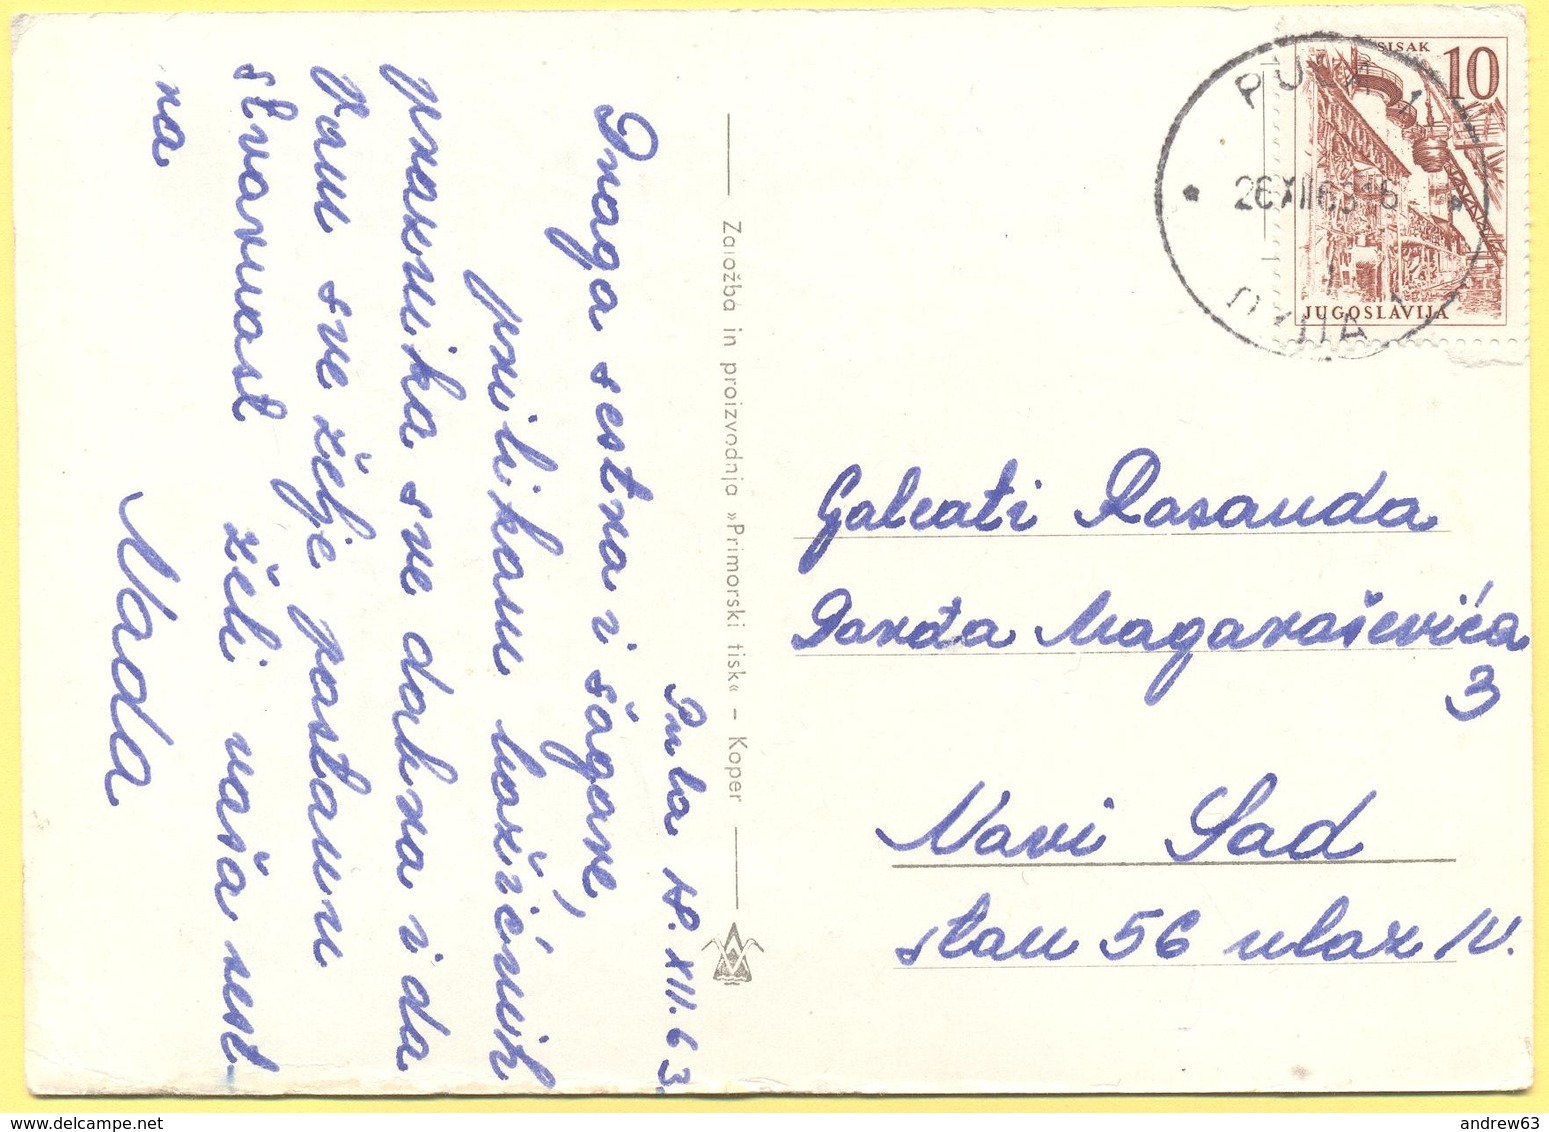 Pula 18. XII. 63.
Draga sestra i šogore,
prilikom božićnih
praznika sve dobra i da
Vam sve želje postanu
stvarnost želi vaša sest
ra
Nada
Založba in proizvodnja »Primorski tisk« - Koper
SISAK 10
JUGOSLAVIJA
PULA 1
26 XII 63 16
Galeati Rosanda
Đorđa Magaraševića
3
Novi Sad
stan 56 ulaz IV.
andrew63
delcampe.net